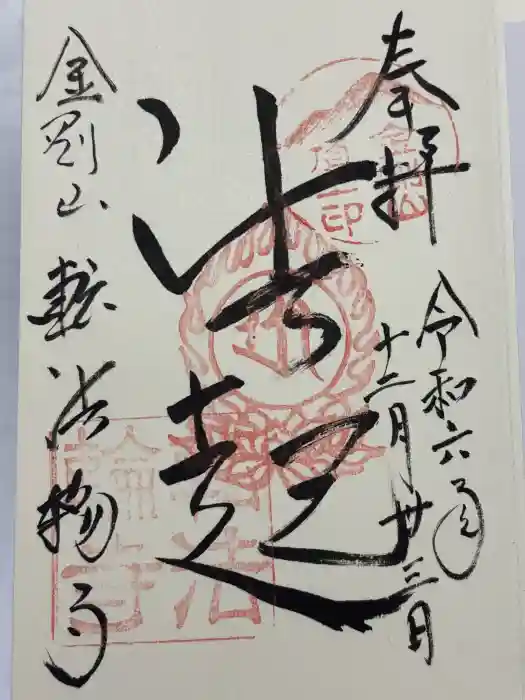 奉拝
令和六年
十二月廿三日
法起
金剛山転法輪寺
轉法
輪寺